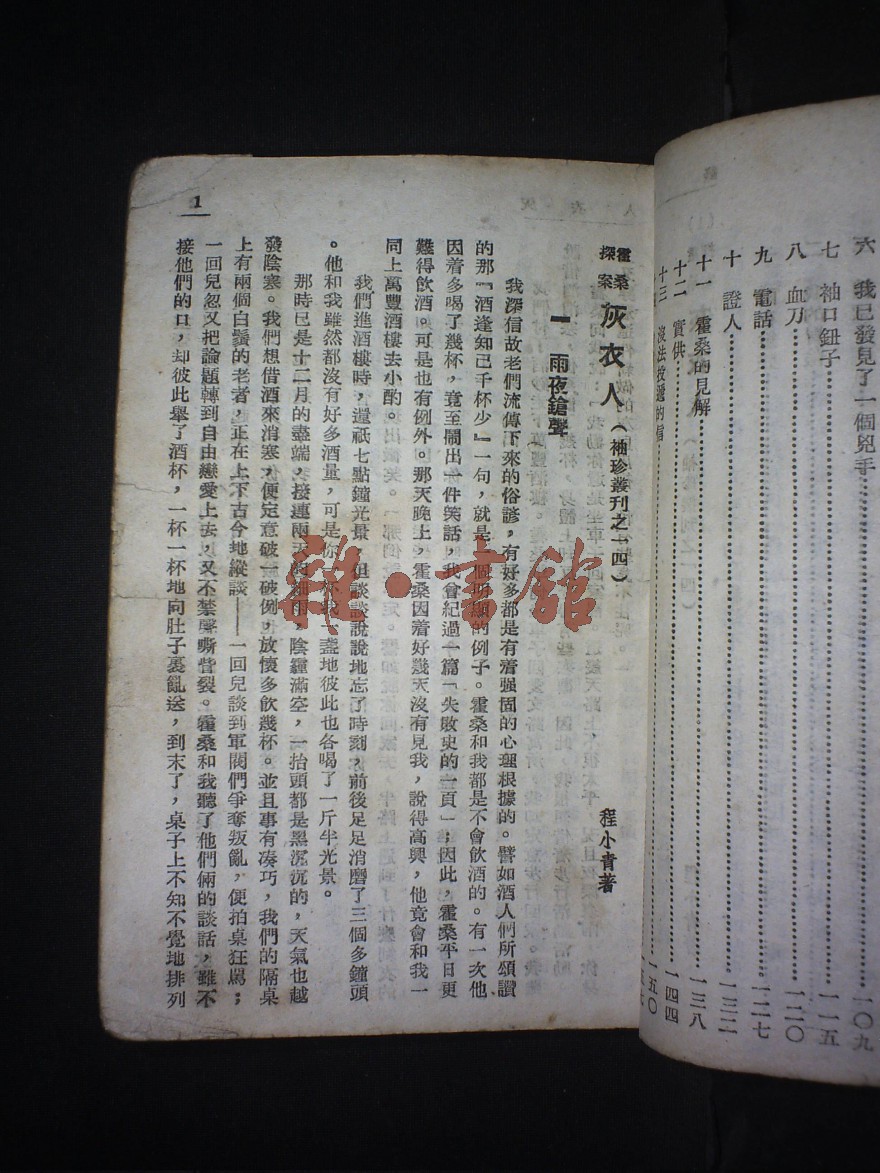 六　我已發見了一個兇手…………一〇九
七　袖口鈕子…………一一五
八　血刀…………一二〇
九　電話…………一二七
十　證人…………一三二
十一　霍桑的見解…………一三八
十二　實供…………一四四
十三　沒法投遞的信…………一五〇
霍桑探案　灰衣人（袖珍叢刊之一四）
程小青著
一　雨夜鎗聲
我深信故老們流傳下來的俗諺，有好多都是有着强固的心理根據的。譬如酒人們所頌讚
的那『酒逢知己千杯少』一句，就是一個明顯的例子。霍桑和我都是不會飲酒的。有一次他
因着多喝了幾杯，竟至鬧出一件笑話，我曾紀過一篇「失敗史的一頁」；因此，霍桑平日更
難得飲酒。可是也有例外。那天晚上，霍桑因着好幾天沒有見我，說得高興，他竟會和我一
同上萬豐酒樓去小酌。
我們進酒樓時，還祇七點鐘光景，但談談說說地忘了時刻，前後足足消磨了三個多鐘頭
。他和我雖然都沒有好多酒量，可是你一杯我一盞地彼此也各喝了一斤半光景。
那時已是十二月的盡端，接連兩天的雨，陰霾滿空，一抬頭都是黑沉沉的，天氣也越
發陰寒。我們想借酒來消寒，便定意破一破例，放懷多飲幾杯。並且事有凑巧，我們的隔桌
上有兩個白鬚的老者，正在上下古今地縱談——一回兒談到軍閥們爭奪叛亂，便拍桌狂駡；
一回兒忽又把論題轉到自由戀愛上去，又不禁聲嘶眥裂。霍桑和我聽了他們倆的談話，雖不
接他們的口，却彼此舉了酒杯，一杯一杯地向肚子裏亂送，到末了，桌子上不知不覺地排列
1
雜·書館